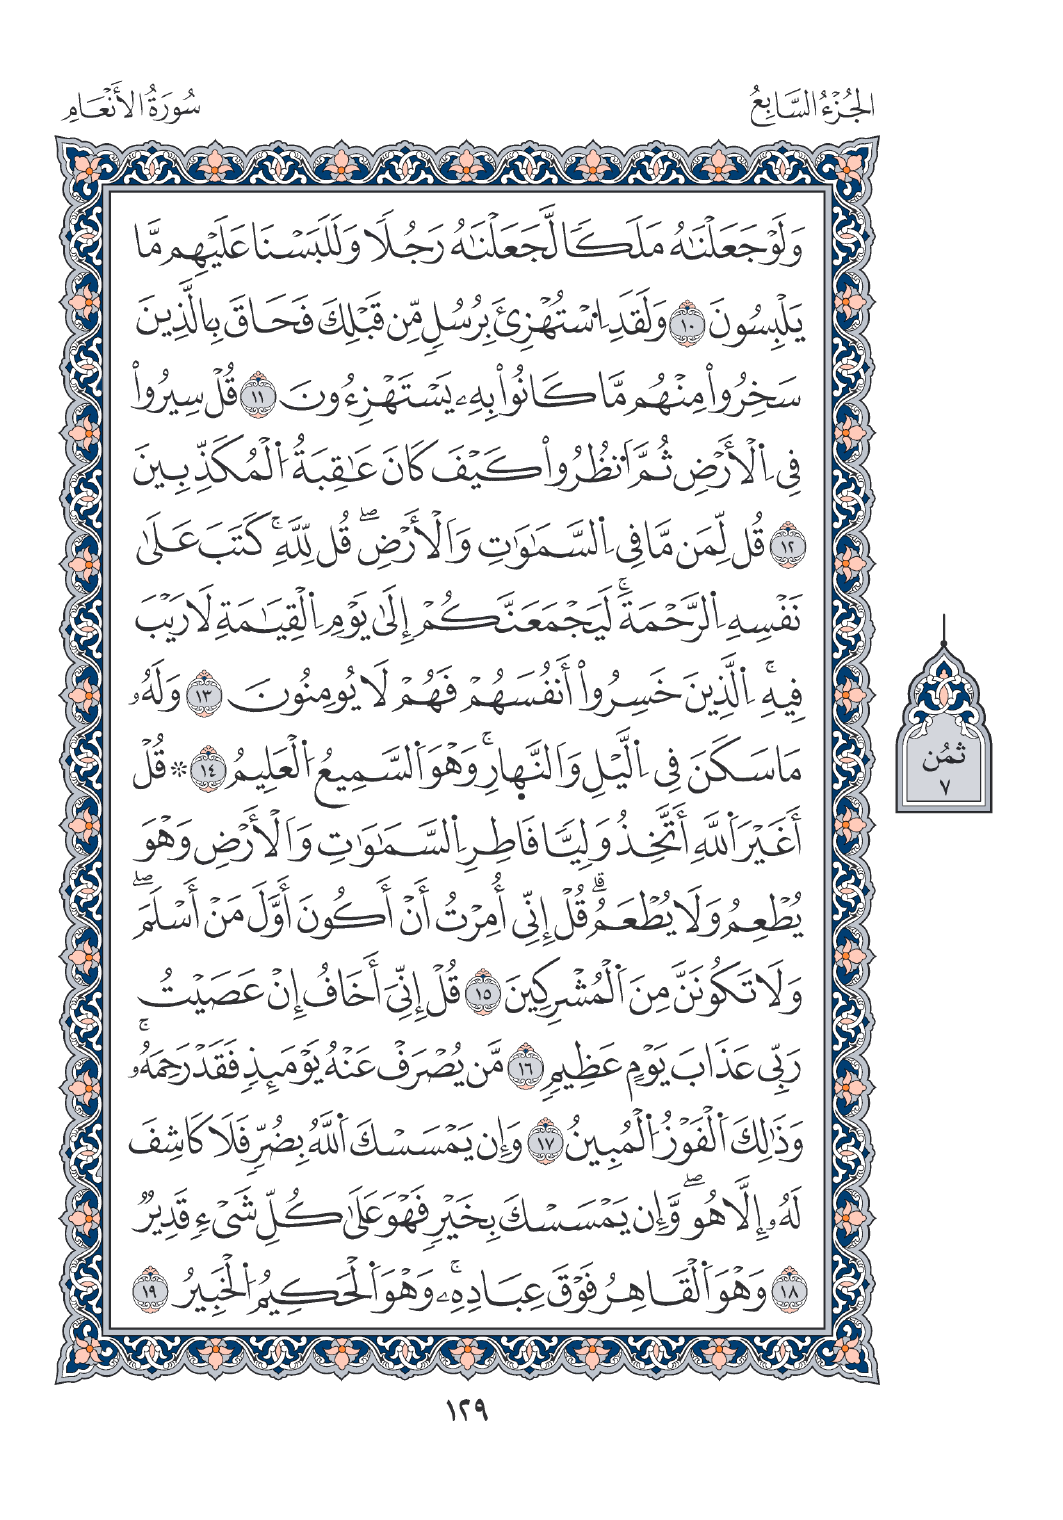 الجُزْءُ السَّابِعُ
سُورَةُ الأَنْعَامِ
وَلَوْ جَعَلْنَٰهُ مَلَكٗا لَّجَعَلْنَٰهُ رَجُلٗا وَلَلَبَسْنَا عَلَيْهِم مَّا
يَلْبِسُونَ ١٠ وَلَقَدِ اِ۟سْتُهْزِئَ بِرُسُلٖ مِّن قَبْلِكَ فَحَاقَ بِالذِينَ
سَخِرُواْ مِنْهُم مَّا كَانُواْ بِهِۦ يَسْتَهْزِءُونَ ١١ قُلْ سِيرُواْ
فِي اِ۬لْأَرْضِ ثُمَّ اَ۟نظُرُواْ كَيْفَ كَانَ عَٰقِبَةُ اُ۬لْمُكَذِّبِينَ
١٢ قُل لِّمَن مَّا فِي اِ۬لسَّمَٰوَٰتِ وَالْأَرْضِۖ قُل لِّلهِۚ كَتَبَ عَلَىٰ
نَفْسِهِ اِ۬لرَّحْمَةَۚ لَيَجْمَعَنَّكُمْ إِلَىٰ يَوْمِ اِ۬لْقِيَٰمَةِ لَا رَيْبَ
فِيهِۚ اِ۬لَّذِينَ خَسِرُواْ أَنفُسَهُمْ فَهُمْ لَا يُومِنُونَ ١٣ وَلَهُۥ
مَا سَكَنَ فِي اِ۬لَّيْلِ وَالنَّهارِۚ وَهْوَ اَ۬لسَّمِيعُ اُ۬لْعَلِيمُ ١٤ ۞ قُلْ
أَغَيْرَ اَ۬للَّهِ أَتَّخِذُ وَلِيّٗا فَاطِرِ اِ۬لسَّمَٰوَٰتِ وَالْأَرْضِ وَهْوَ
يُطْعِمُ وَلَا يُطْعَمُۗ قُلْ إِنِّي أُمِرْتُ أَنْ أَكُونَ أَوَّلَ مَنْ أَسْلَمَۖ
وَلَا تَكُونَنَّ مِنَ اَ۬لْمُشْرِكِينَ ١٥ قُلْ إِنِّيَ أَخَافُ إِنْ عَصَيْتُ
رَبِّي عَذَابَ يَوْمٍ عَظِيمٖ ١٦ مَّن يُصْرَفْ عَنْهُ يَوْمَئِذٖ فَقَدْ رَحِمَهُۥۚ
وَذَٰلِكَ اَ۬لْفَوْزُ اُ۬لْمُبِينُ ١٧ وَإِن يَمْسَسْكَ اَ۬للَّهُ بِضُرّٖ فَلَا كَاشِفَ
لَهُۥ إِلَّا هُوۖ وَّإِن يَمْسَسْكَ بِخَيْرٖ فَهْوَ عَلَىٰ كُلِّ شَيْءٖ قَدِيرٞ
١٨ وَهْوَ اَ۬لْقَاهِرُ فَوْقَ عِبَادِهِۦۚ وَهْوَ اَ۬لْحَكِيمُ اُ۬لْخَبِيرُ ١٩
ثُمُن
٧
١٢٩